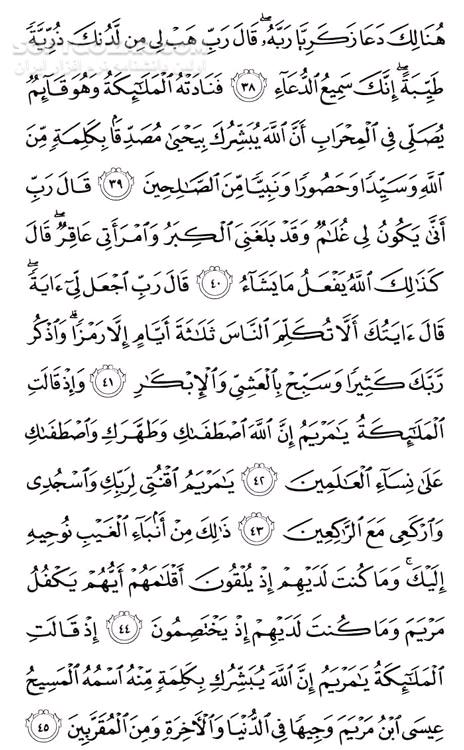 هُنَالِكَ دَعَا زَكَرِيَّا رَبَّهُۥ ۖ قَالَ رَبِّ هَبْ لِى مِن لَّدُنكَ ذُرِّيَّةً
طَيِّبَةً ۖ إِنَّكَ سَمِيعُ الدُّعَآءِ ٣٨ فَنَادَتْهُ الْمَلَـٰٓئِكَةُ وَهُوَ قَآئِمٌ
يُصَلِّى فِى الْمِحْرَابِ أَنَّ اللَّهَ يُبَشِّرُكَ بِيَحْيَىٰ مُصَدِّقًۢا بِكَلِمَةٍ مِّنَ
اللَّهِ وَسَيِّدًا وَحَصُورًا وَنَبِيًّا مِّنَ الصَّـٰلِحِينَ ٣٩ قَالَ رَبِّ
أَنَّىٰ يَكُونُ لِى غُلَـٰمٌ وَقَدْ بَلَغَنِىَ الْكِبَرُ وَامْرَأَتِى عَاقِرٌ ۖ قَالَ
كَذَٰلِكَ اللَّهُ يَفْعَلُ مَا يَشَآءُ ٤٠ قَالَ رَبِّ اجْعَل لِّىٓ ءَايَةً ۖ
قَالَ ءَايَتُكَ أَلَّا تُكَلِّمَ النَّاسَ ثَلَـٰثَةَ أَيَّامٍ إِلَّا رَمْزًا ۗ وَاذْكُر
رَّبَّكَ كَثِيرًا وَسَبِّحْ بِالْعَشِىِّ وَالْإِبْكَـٰرِ ٤١ وَإِذْ قَالَتِ
الْمَلَـٰٓئِكَةُ يَـٰمَرْيَمُ إِنَّ اللَّهَ اصْطَفَىٰكِ وَطَهَّرَكِ وَاصْطَفَىٰكِ
عَلَىٰ نِسَآءِ الْعَـٰلَمِينَ ٤٢ يَـٰمَرْيَمُ اقْنُتِى لِرَبِّكِ وَاسْجُدِى
وَارْكَعِى مَعَ الرَّٰكِعِينَ ٤٣ ذَٰلِكَ مِنْ أَنۢبَآءِ الْغَيْبِ نُوحِيهِ
إِلَيْكَ ۚ وَمَا كُنتَ لَدَيْهِمْ إِذْ يُلْقُونَ أَقْلَـٰمَهُمْ أَيُّهُمْ يَكْفُلُ
مَرْيَمَ وَمَا كُنتَ لَدَيْهِمْ إِذْ يَخْتَصِمُونَ ٤٤ إِذْ قَالَتِ
الْمَلَـٰٓئِكَةُ يَـٰمَرْيَمُ إِنَّ اللَّهَ يُبَشِّرُكِ بِكَلِمَةٍ مِّنْهُ اسْمُهُ الْمَسِيحُ
عِيسَى ابْنُ مَرْيَمَ وَجِيهًا فِى الدُّنْيَا وَالْـَٔاخِرَةِ وَمِنَ الْمُقَرَّبِينَ ٤٥